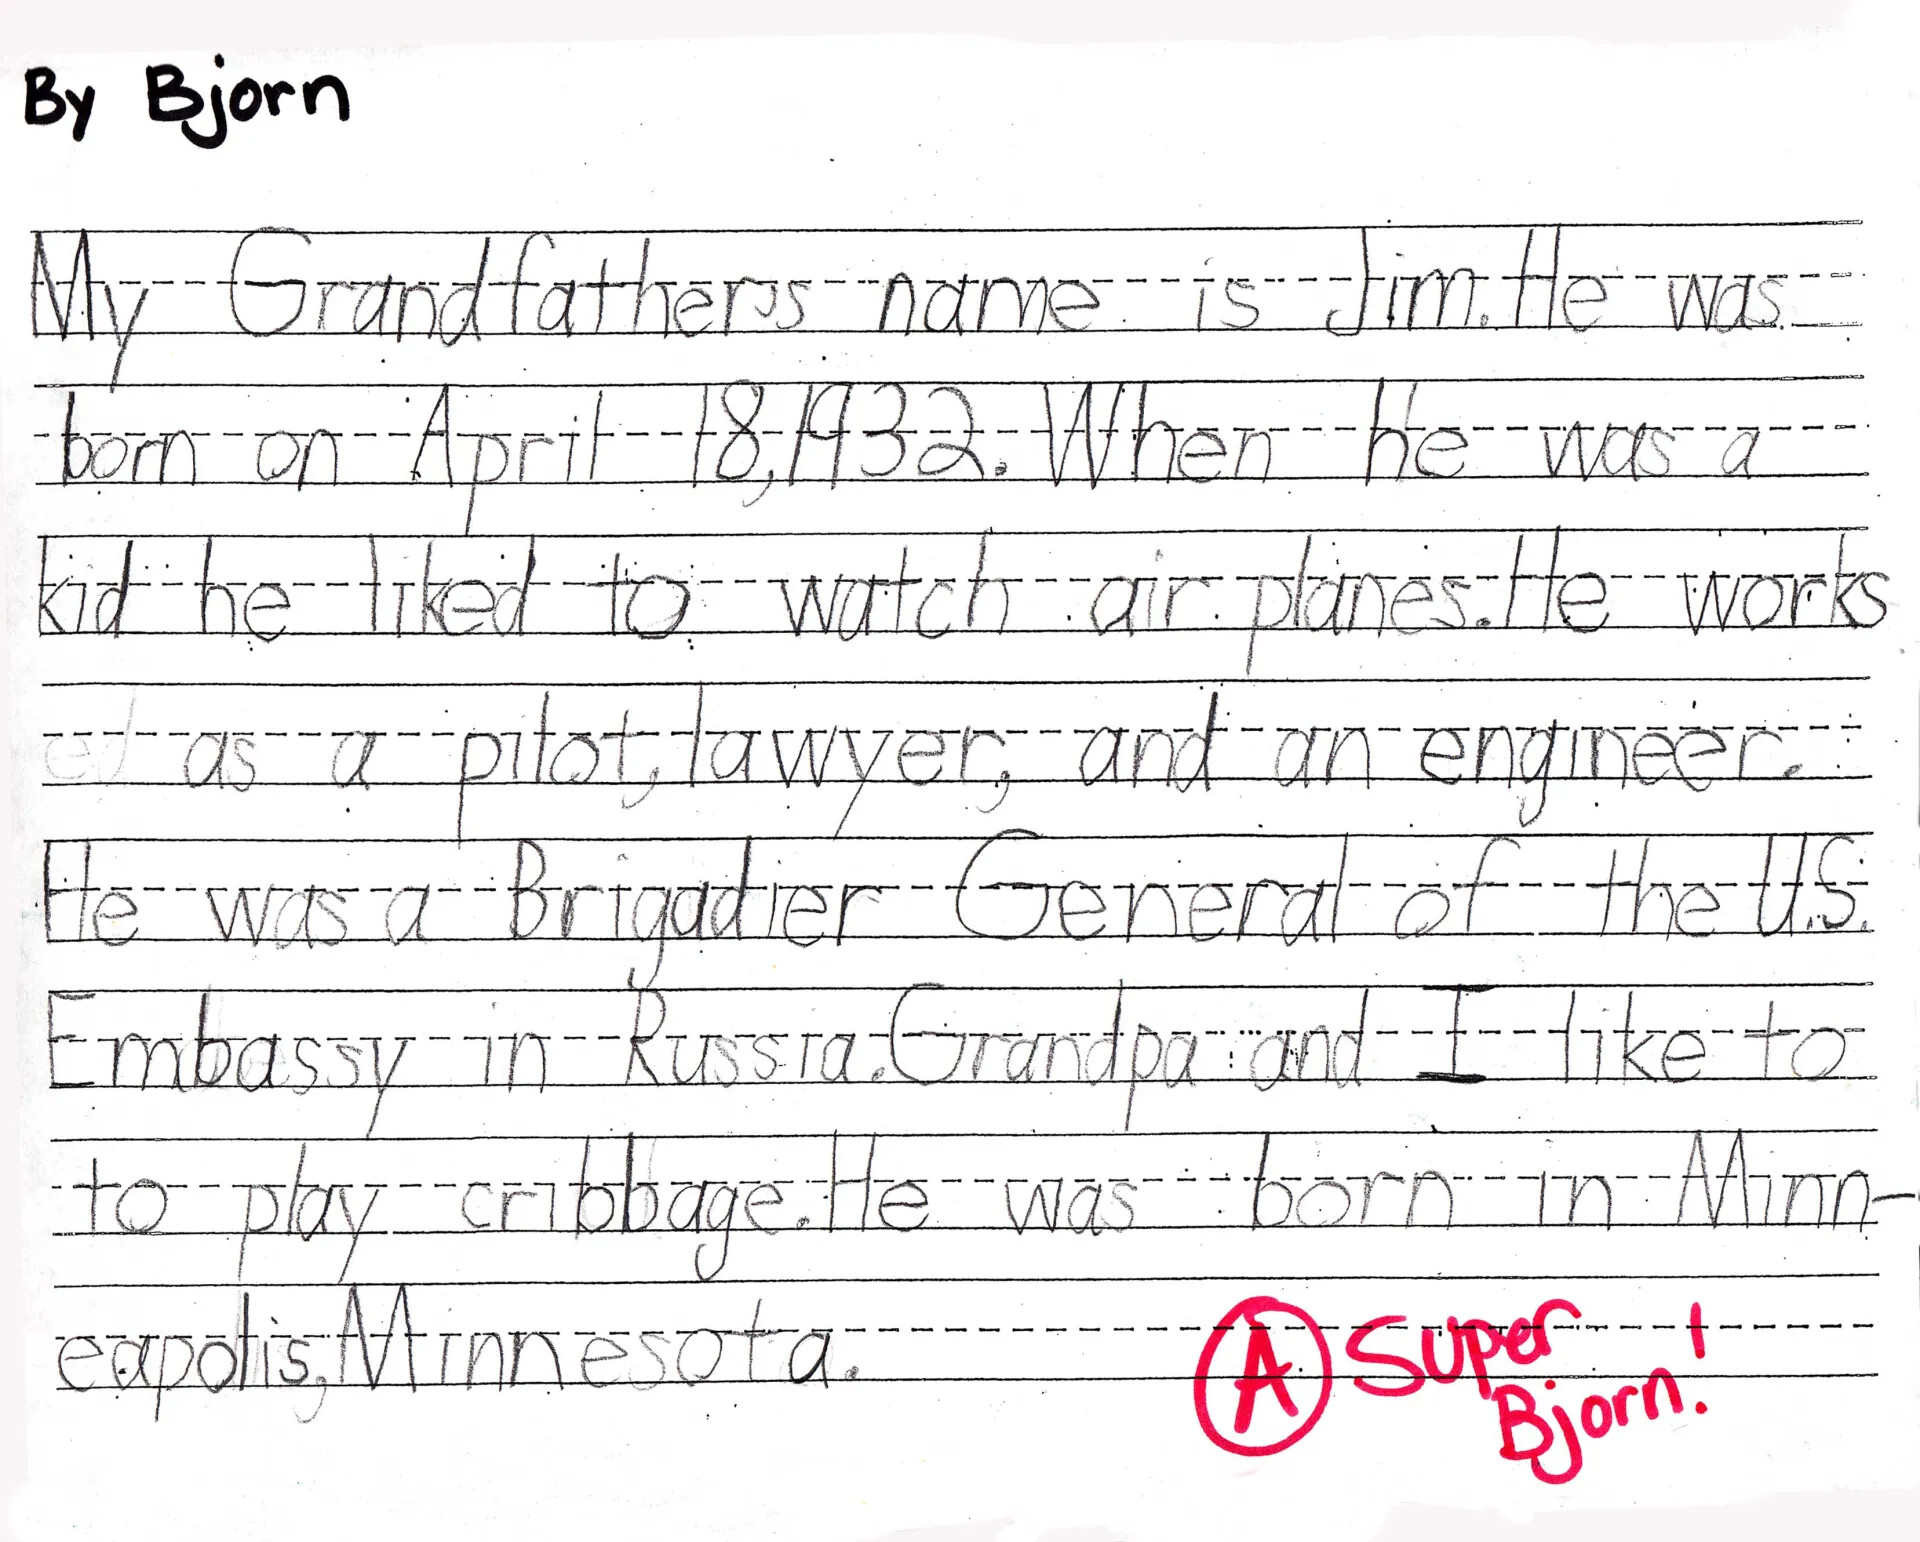 By Bjorn
My Grandfathers name is Jim. He was
born on April 18, 1932. When he was a
kid he liked to watch air planes. He works
ed as a pilot, lawyer, and an engineer.
He was a Brigadier General of the U.S.
Embassy in Russia. Grandpa and I like to
to play cribbage. He was born in Minn-
eapolis, Minnesota.
A Super
Bjorn!